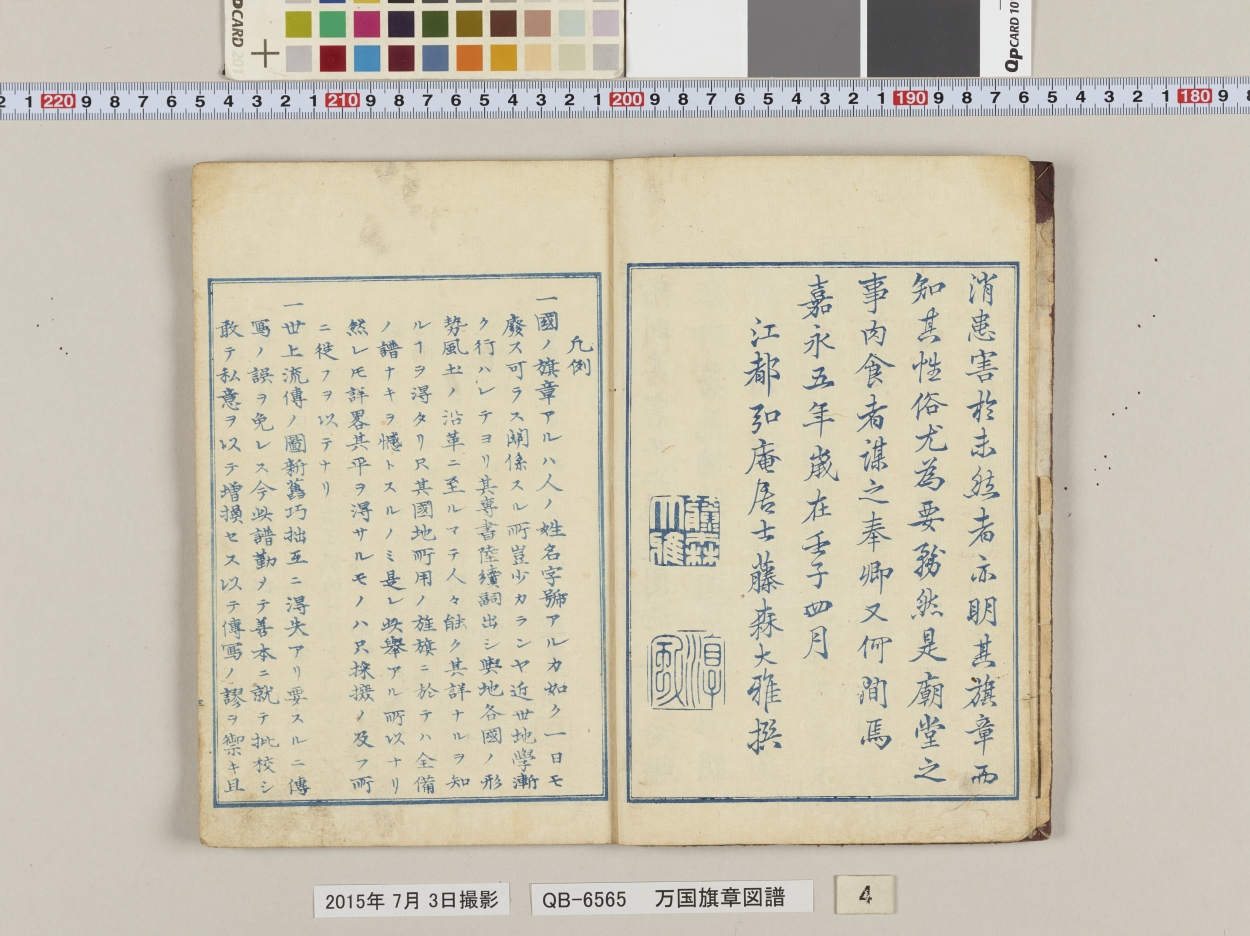 消患害於未然者亦明其旗章而
知其性俗尤為要務然是廟堂之
事肉食者謀之奉卿又何間焉
嘉永五年歳在壬子四月
江都弘庵居士藤森大雅撰
藤森大雅
淳風
凡例
一國ノ旗章アルハ人ノ姓名字號アルカ如ク一日モ
廢ス可ラス關係スル所豈少カランヤ近世地學漸
ク行ハレテヨリ其專書陸續嗣出シ輿地各國ノ形
勢風土ノ沿革ニ至ルマテ人々能ク其詳ナルヲ知
ルヿヲ得タリ只其國地所用ノ旌旗ニ於テハ全備
ノ譜ナキヲ憾トスルノミ是レ此舉アル所以ナリ
然レ𪜈詳畧其平ヲ得サルモノハ只採撥ノ及フ所
ニ従フヲ以テナリ
一世上流傳ノ圖新舊巧拙互ニ得失アリ要スルニ傳
寫ノ誤ヲ免レス今此譜勤メテ善本ニ就テ批校シ
敢テ私意ヲ以テ増損セス以テ傳寫ノ謬ヲ禦キ且
2015年 7月 3日撮影
QB-6565 万国旗章図譜
4
QPCARD 201
QPCARD 10
2 1 220 9 8 7 6 5 4 3 2 1 210 9 8 7 6 5 4 3 2 1 200 9 8 7 6 5 4 3 2 1 190 9 8 7 6 5 4 3 2 1 180 9 8